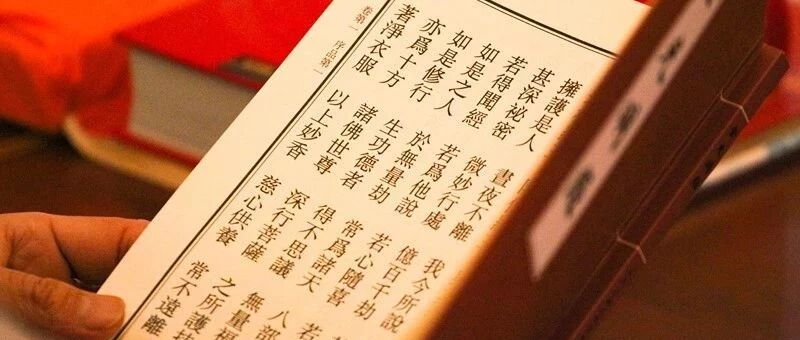 擁護是人　晝夜不離　我今所說
甚深祕密　微妙行處　億百千劫
若得聞經　若爲他說　若心隨喜　若
如是之人　於無量劫　常爲諸天　八部
如是修行　生功德者　得不思議　無量福
亦爲十方　諸佛世尊　深行菩薩　之所護持
著淨衣服　以上妙香　慈心供養　常不遠離
卷第一　序品第一